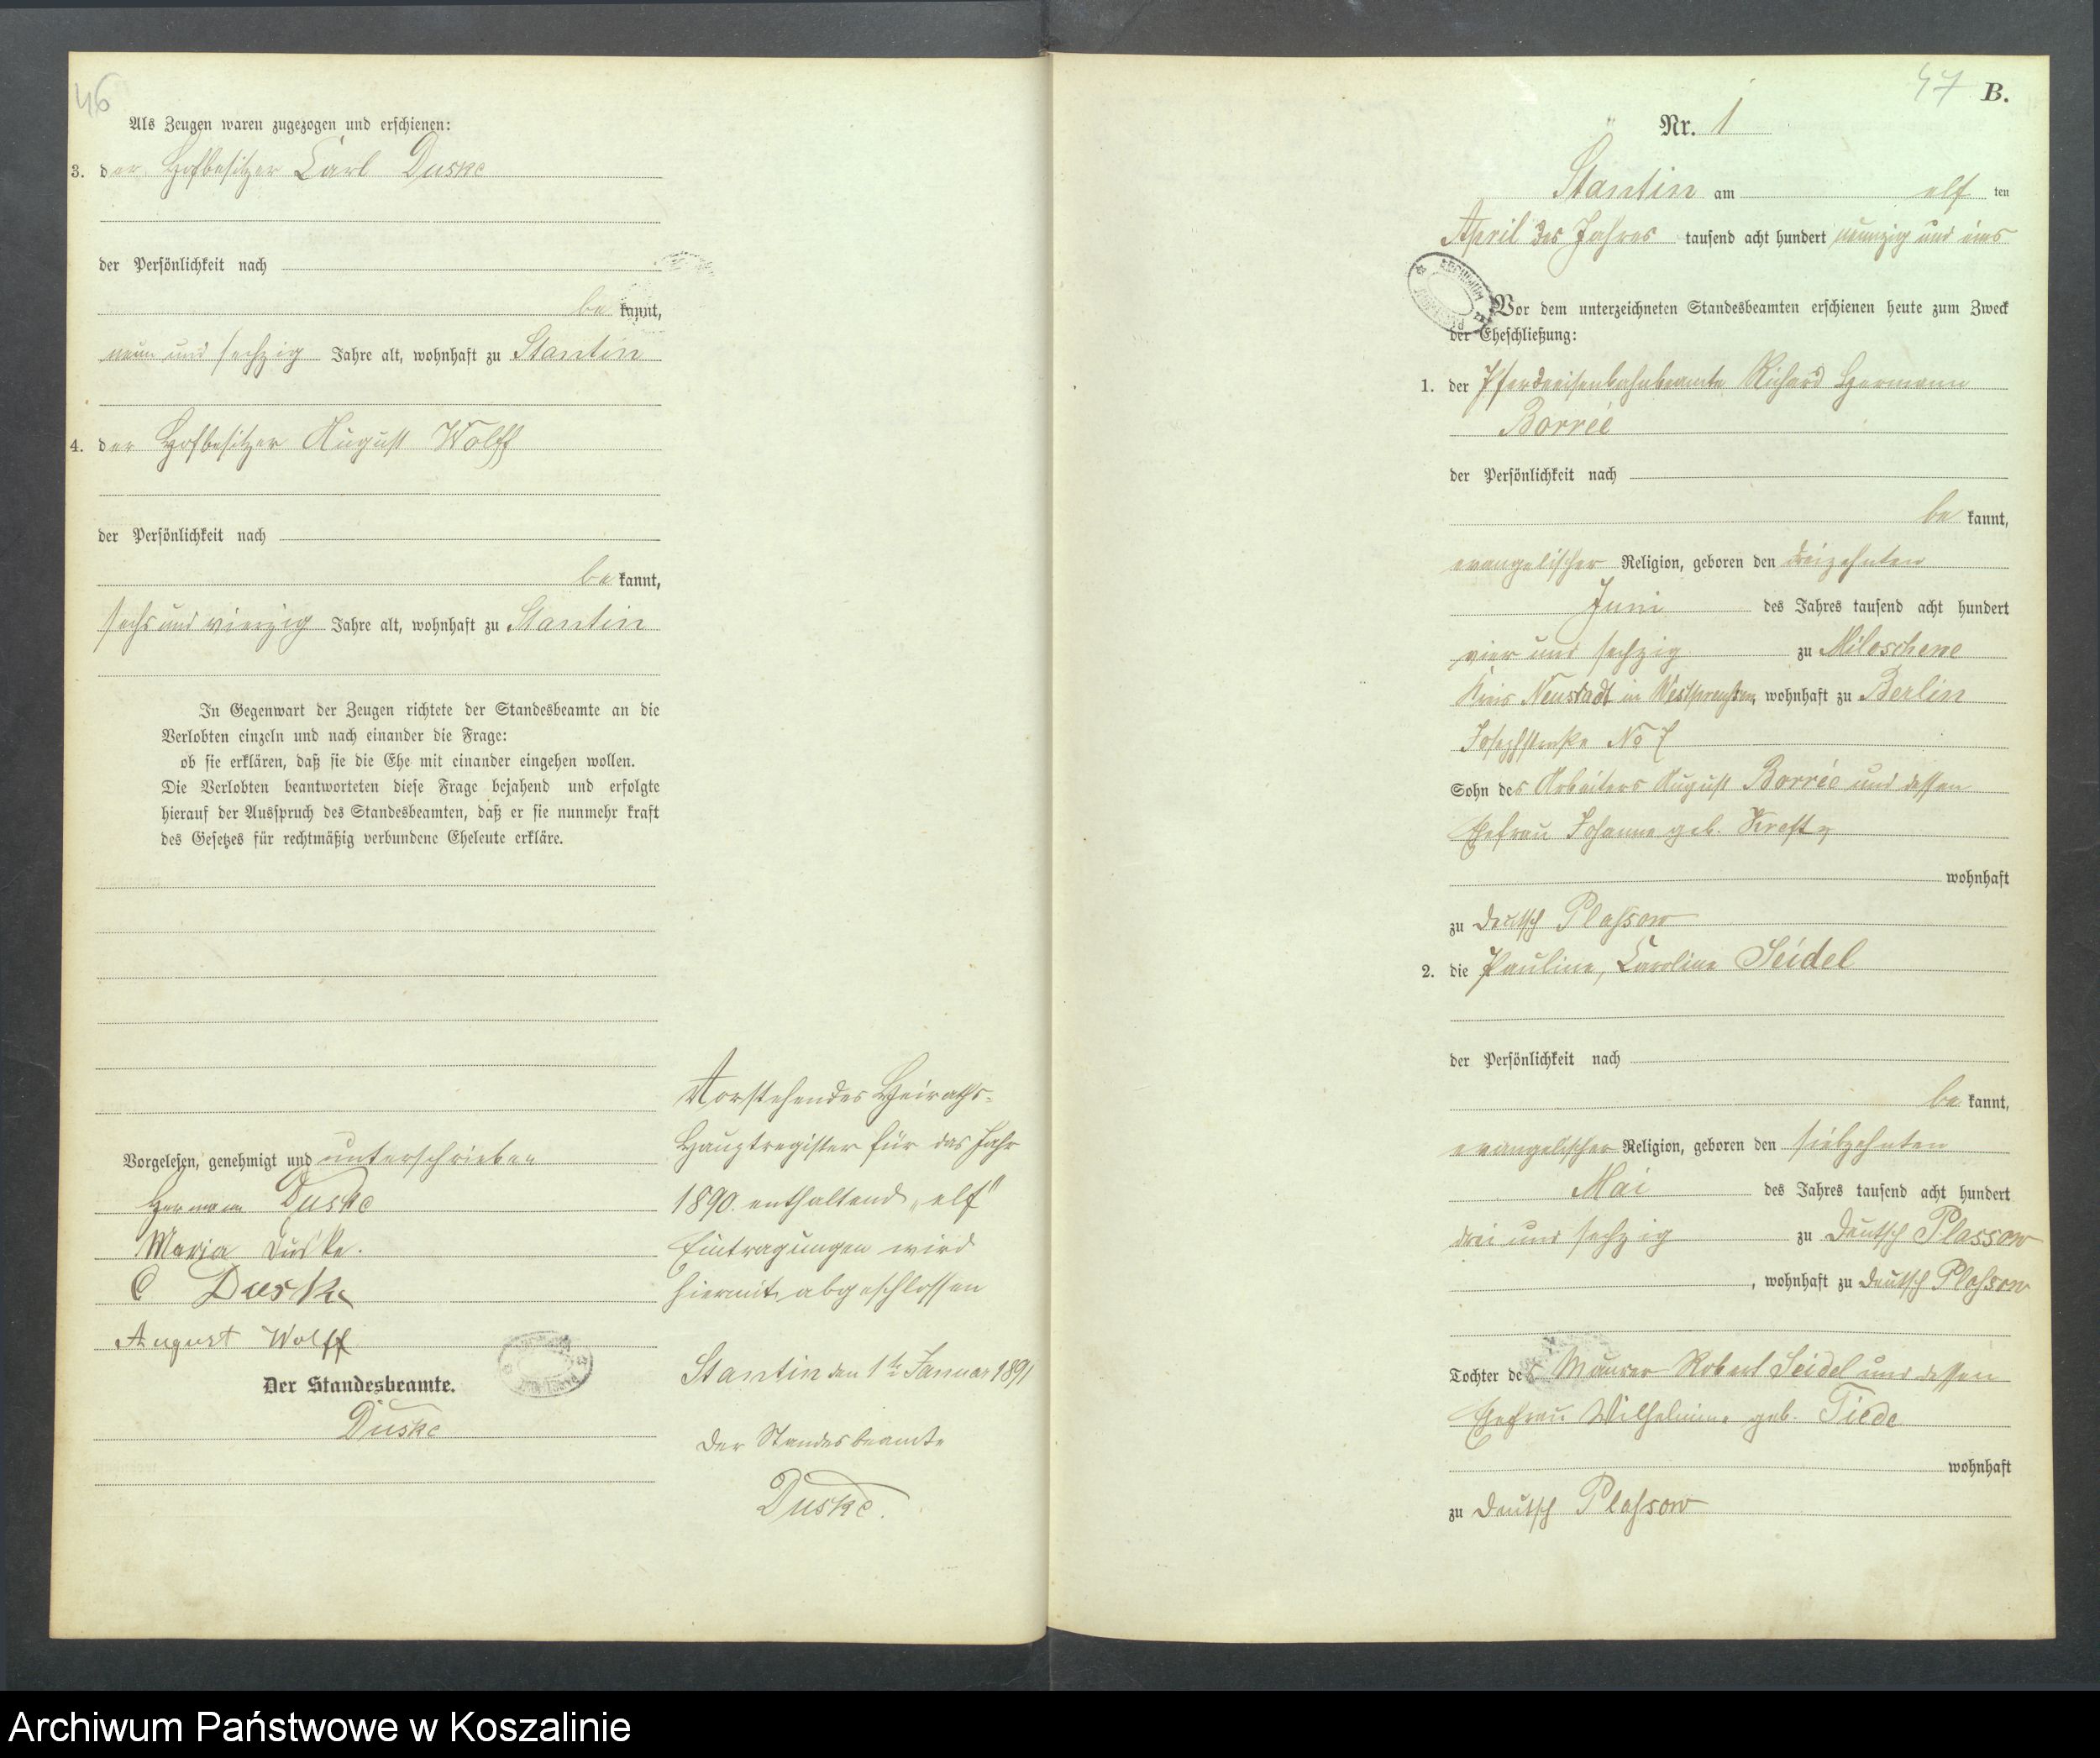 46
Als Zeugen waren zugezogen und erschienen:
3. der Hofbesitzer Carl Duske
der Persönlichkeit nach
be kannt,
neun und sechzig Jahre alt, wohnhaft zu Stantin
4. der Hofbesitzer August Wolff
der Persönlichkeit nach
be kannt,
sechs und vierzig Jahre alt, wohnhaft zu Stantin
In Gegenwart der Zeugen richtete der Standesbeamte an die
Verlobten einzeln und nach einander die Frage:
ob sie erklären, daß sie die Ehe mit einander eingehen wollen.
Die Verlobten beantworteten diese Frage bejahend und erfolgte
hierauf der Ausspruch des Standesbeamten, daß er sie nunmehr kraft
des Gesetzes für rechtmäßig verbundene Eheleute erkläre.
Vorgelesen, genehmigt und unterschrieben
Hermann Duske
Maria Duske.
C Duske
August Wolff
Der Standesbeamte.
Duske
Vorstehendes Heiraths-
Hauptregister für das Jahr
1890. enthaltend „elf"
Eintragungen wird
hiermit abgeschlossen
Stantin den 1ten Januar 1891
Der Standesbeamte
Duske.
47 B.
Nr. 1
Stantin am elf ten
April des Jahres tausend acht hundert neunzig und eins
Vor dem unterzeichneten Standesbeamten erschienen heute zum Zweck
der Eheschließung:
1. der Pferdeeisenbahnbeamte Richard Hermann
Borrée
der Persönlichkeit nach
be kannt,
evangelischer Religion, geboren den dreizehnten
Juni des Jahres tausend acht hundert
vier und sechzig zu Miloschewe
Kreis Neustadt in Westpreußen, wohnhaft zu Berlin
Josephstraße No 7
Sohn des Arbeiters August Borrée und dessen
Ehefrau Johanne geb. Kreft
wohnhaft
zu Deutsch Plassow
2. die Pauline, Caroline Seidel
der Persönlichkeit nach
be kannt,
evangelischer Religion, geboren den siebzehnten
Mai des Jahres tausend acht hundert
drei und sechzig zu Deutsch Plassow
, wohnhaft zu Deutsch Plassow
Tochter des Maurer Robert Seidel und dessen
Ehefrau Wilhelmine geb. Tiede
wohnhaft
zu Deutsch Plassow
Archiwum Państwowe w Koszalinie